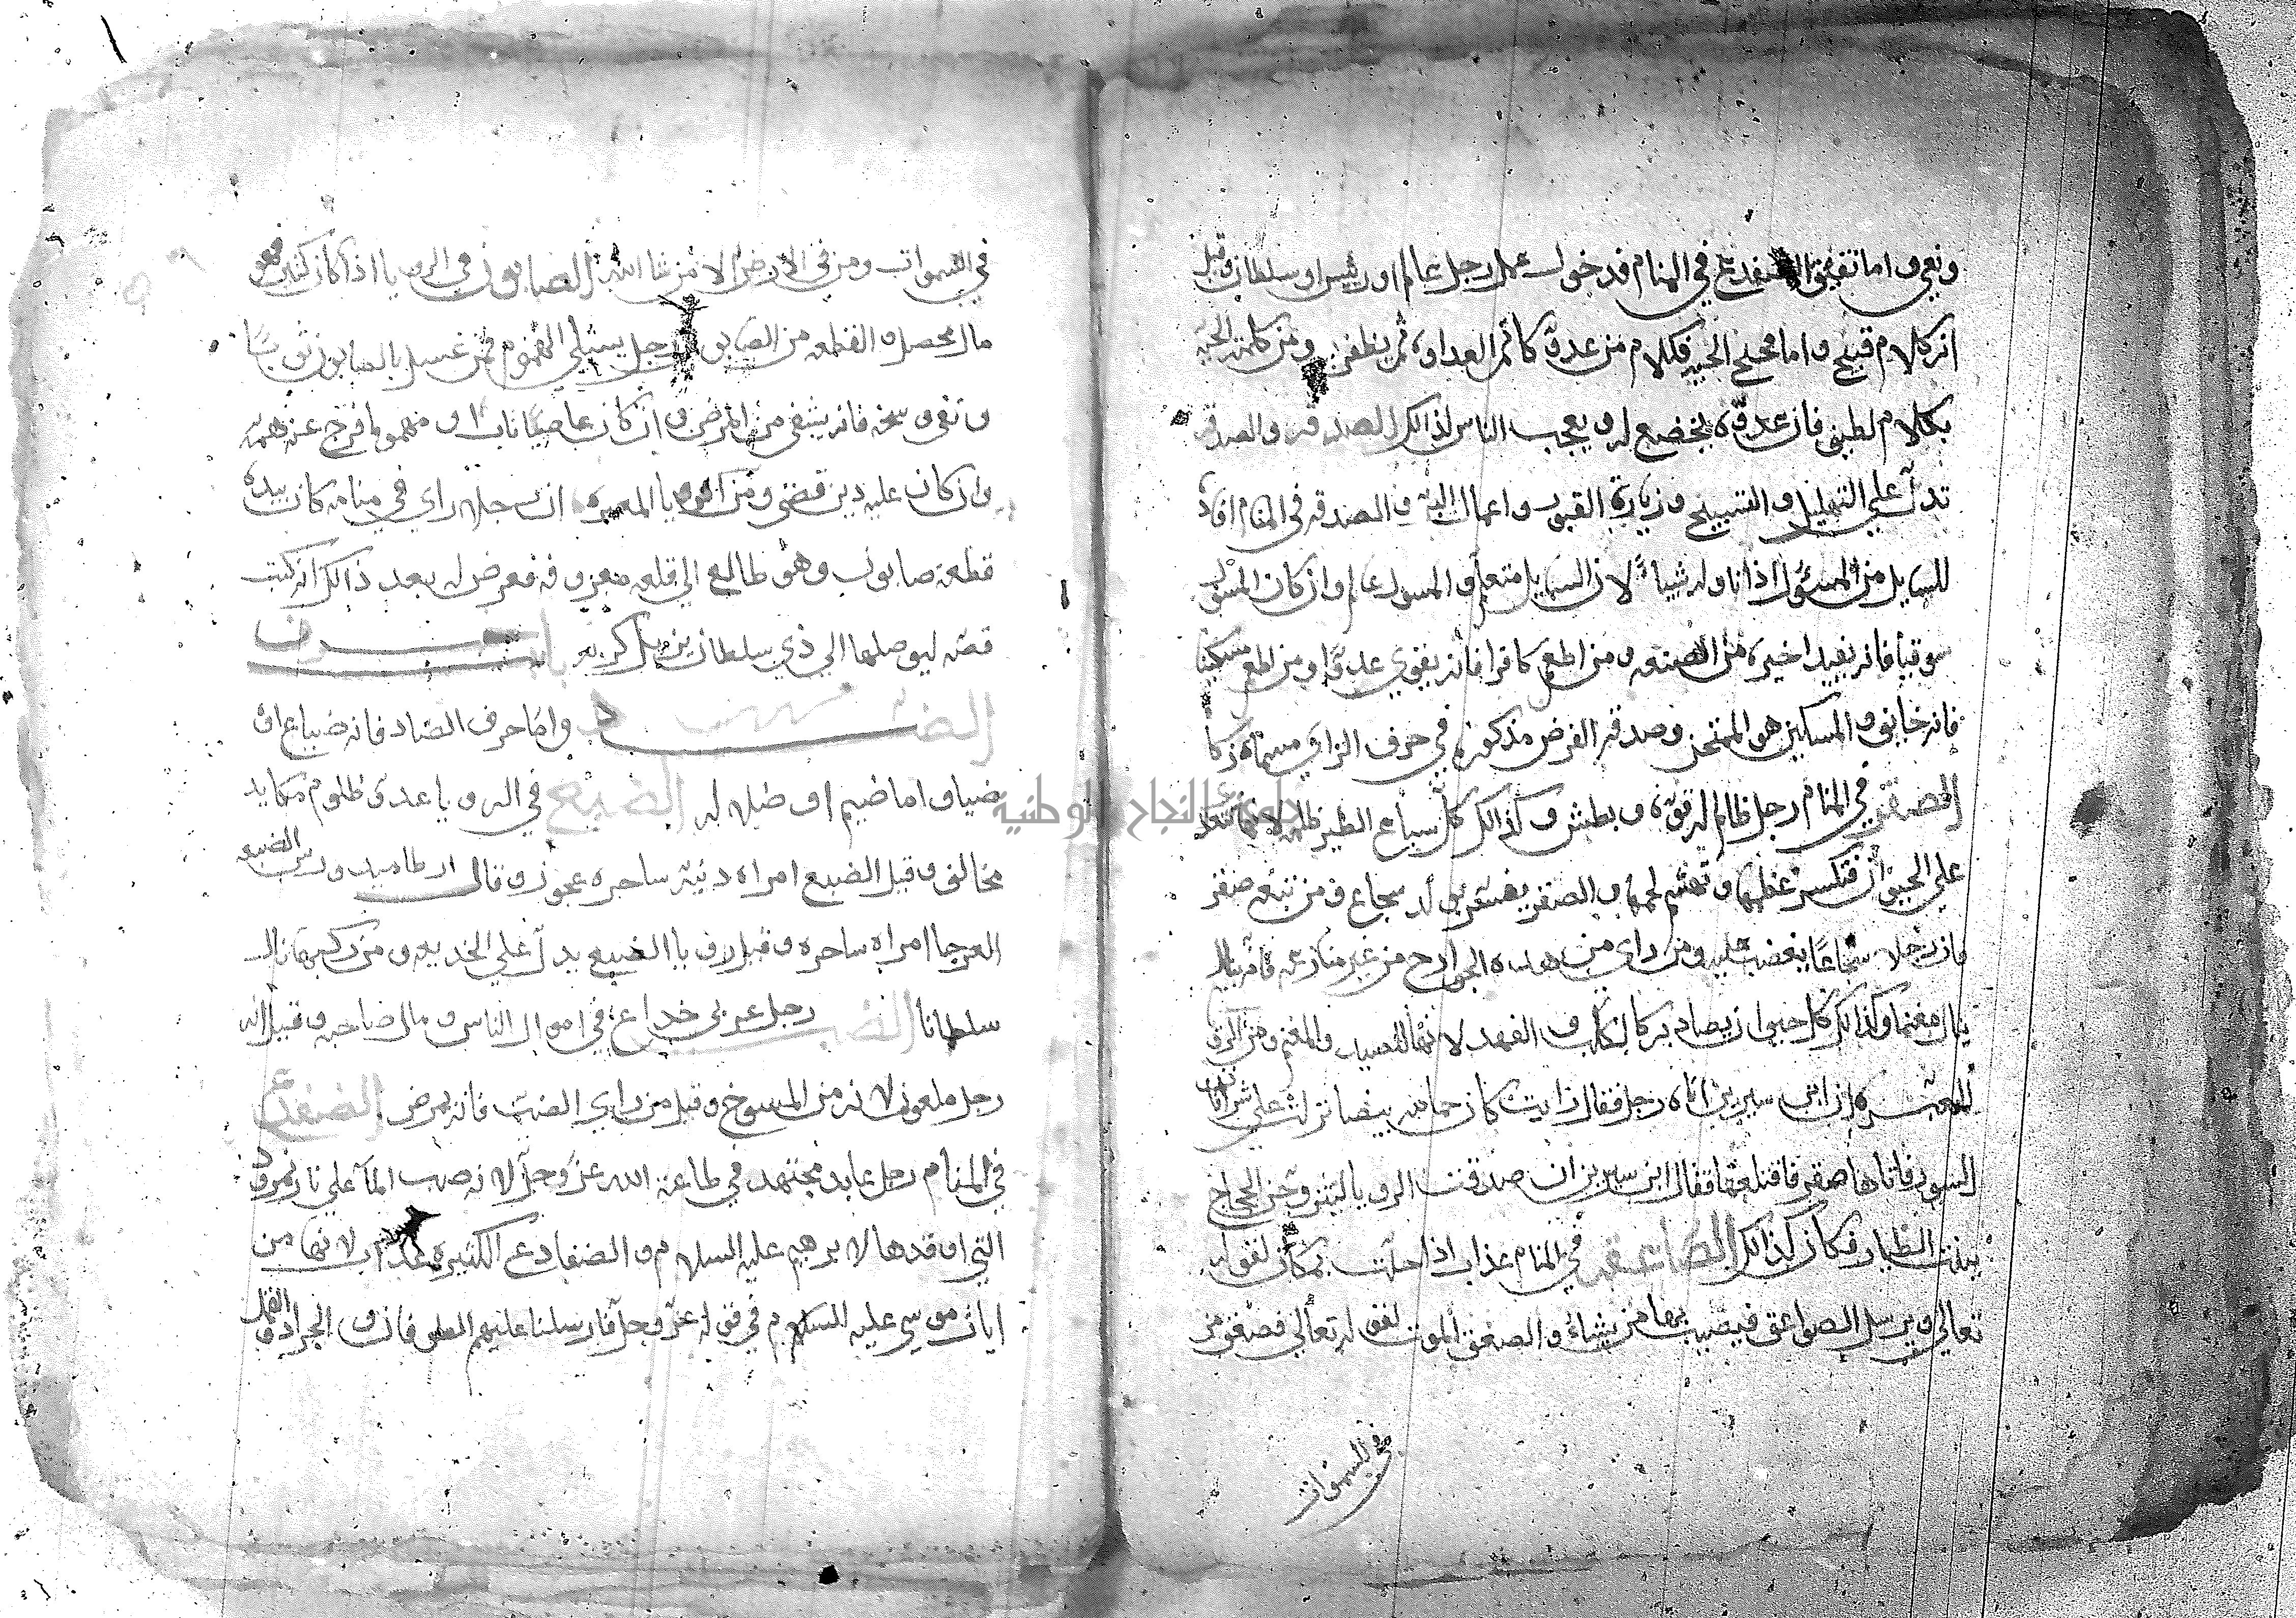 ونعي واما نقيق الضفدع في المنام فدخول عمل رجل عالم او رئيس او سلطان وقيل
انه كلام قبيح واما فحيح الحيه فكلام من عدو كاتم العداوه ثم يظفر ومن كلمته الحيه
بكلام لطيف فان عدوه يخضع له ويعجب الناس لذالك الصدقه والصدقه
تدل علي التهليل والتسبيح وزيارة القبور واعمال البر والصدقه في المنام افاده
للسايل من المسؤل اذا ناوله شياً لان السايل متعلم والمسول عالم وان كان المسول
سوقياً فانه يفيد اخيره من الصنعه ومن اطعم كافرا فانه يقوي عدوا ومن اطعم مسكينا
فانه خايف والمسكين هو الممتحن وصدقه الفرض مذكوره في حرف الزاي مسماه زكا
الصقر في المنام رجل ظالم له قوة وبطش وكذالك كل سباع الطير ظلمه لانها
علي الحيوان فتكسر عظمها وتهشم لحمها والصقر يفسر بولد شجاع ومن تبعه صقر
فان رجلا شجاعا يغضب عليه ومن راي من هذه الجوارح من غير منازعه فانه ينال
ينال مغنما وكذالك كل حيوان يصاد به كالكلب والفهد لانها للصيد والمغنم ومن الرؤيا
المعبره ان ابن سيرين اتاه رجل فقال رايت كان حمامه بيضا نزلت علي شرافات
السور فاتاها صقر فاقتلعها فقال ابن سيرين ان صدقت الرويا ليتزوجن الحجاج
بنت الطيار فكان كذالك الصاعقه في المنام عذاب اذا حلت بمكان لقوله
تعالي ويرسل الصواعق فيصيب بها من يشاء والصعق الموت لقوله تعالي فصعق من
في السموات
في السموات ومن في الارض الا من شا الله الصابون في الرويا اذا كان كثير فهو
مال محصل والقطعه من الصابون رجل يسلي الهموم فمن غسل بالصابون ثوبا
ونقي وسخه فانه يشفي من المرض وان كان عاصيا تاب او مهموما فرج عنه همه
وان كان عليه دين قضي ومن الرويا المعبره ان رجلا راي في منامه كان بيده
قطعة صابون وهو طالع الي قلعه معروفه فعرض له بعد ذالك انه كتب
قصه ليوصلها الي ذي سلطان يزيل كربه باب حرف
الضاد واما حرف الضاد فانه ضياع او
ضيا واما ضيم او ضلاله الضبع في الرويا عدو ظلوم مكايد
مخالف وقيل الضبع امراه دنيه ساحره عجوز وقال ارطاميدورس الضبعه
العرجا امراه ساحره وقيل رويا الضبع يدل علي الخديعه ومن ركبها نال
سلطانا الضب رجل عربي خداع في اموال الناس ومال صاحبه وقيل انه
رجل ملعون لانه من المسوخ وقيل من راي الضب فانه يمرض الضفدع
في المنام رجل عابد مجتهد في طاعة الله عز وجل لانه صب المآ علي نار نمرود
التي اوقدها لابرهيم عليه السلام والضفادع الكثيره عذاب لانها من
ايات موسي عليه السلام في قوله عز وجل فارسلنا عليهم الطوفان والجراد والقمل
جامعة النجاح الوطنية